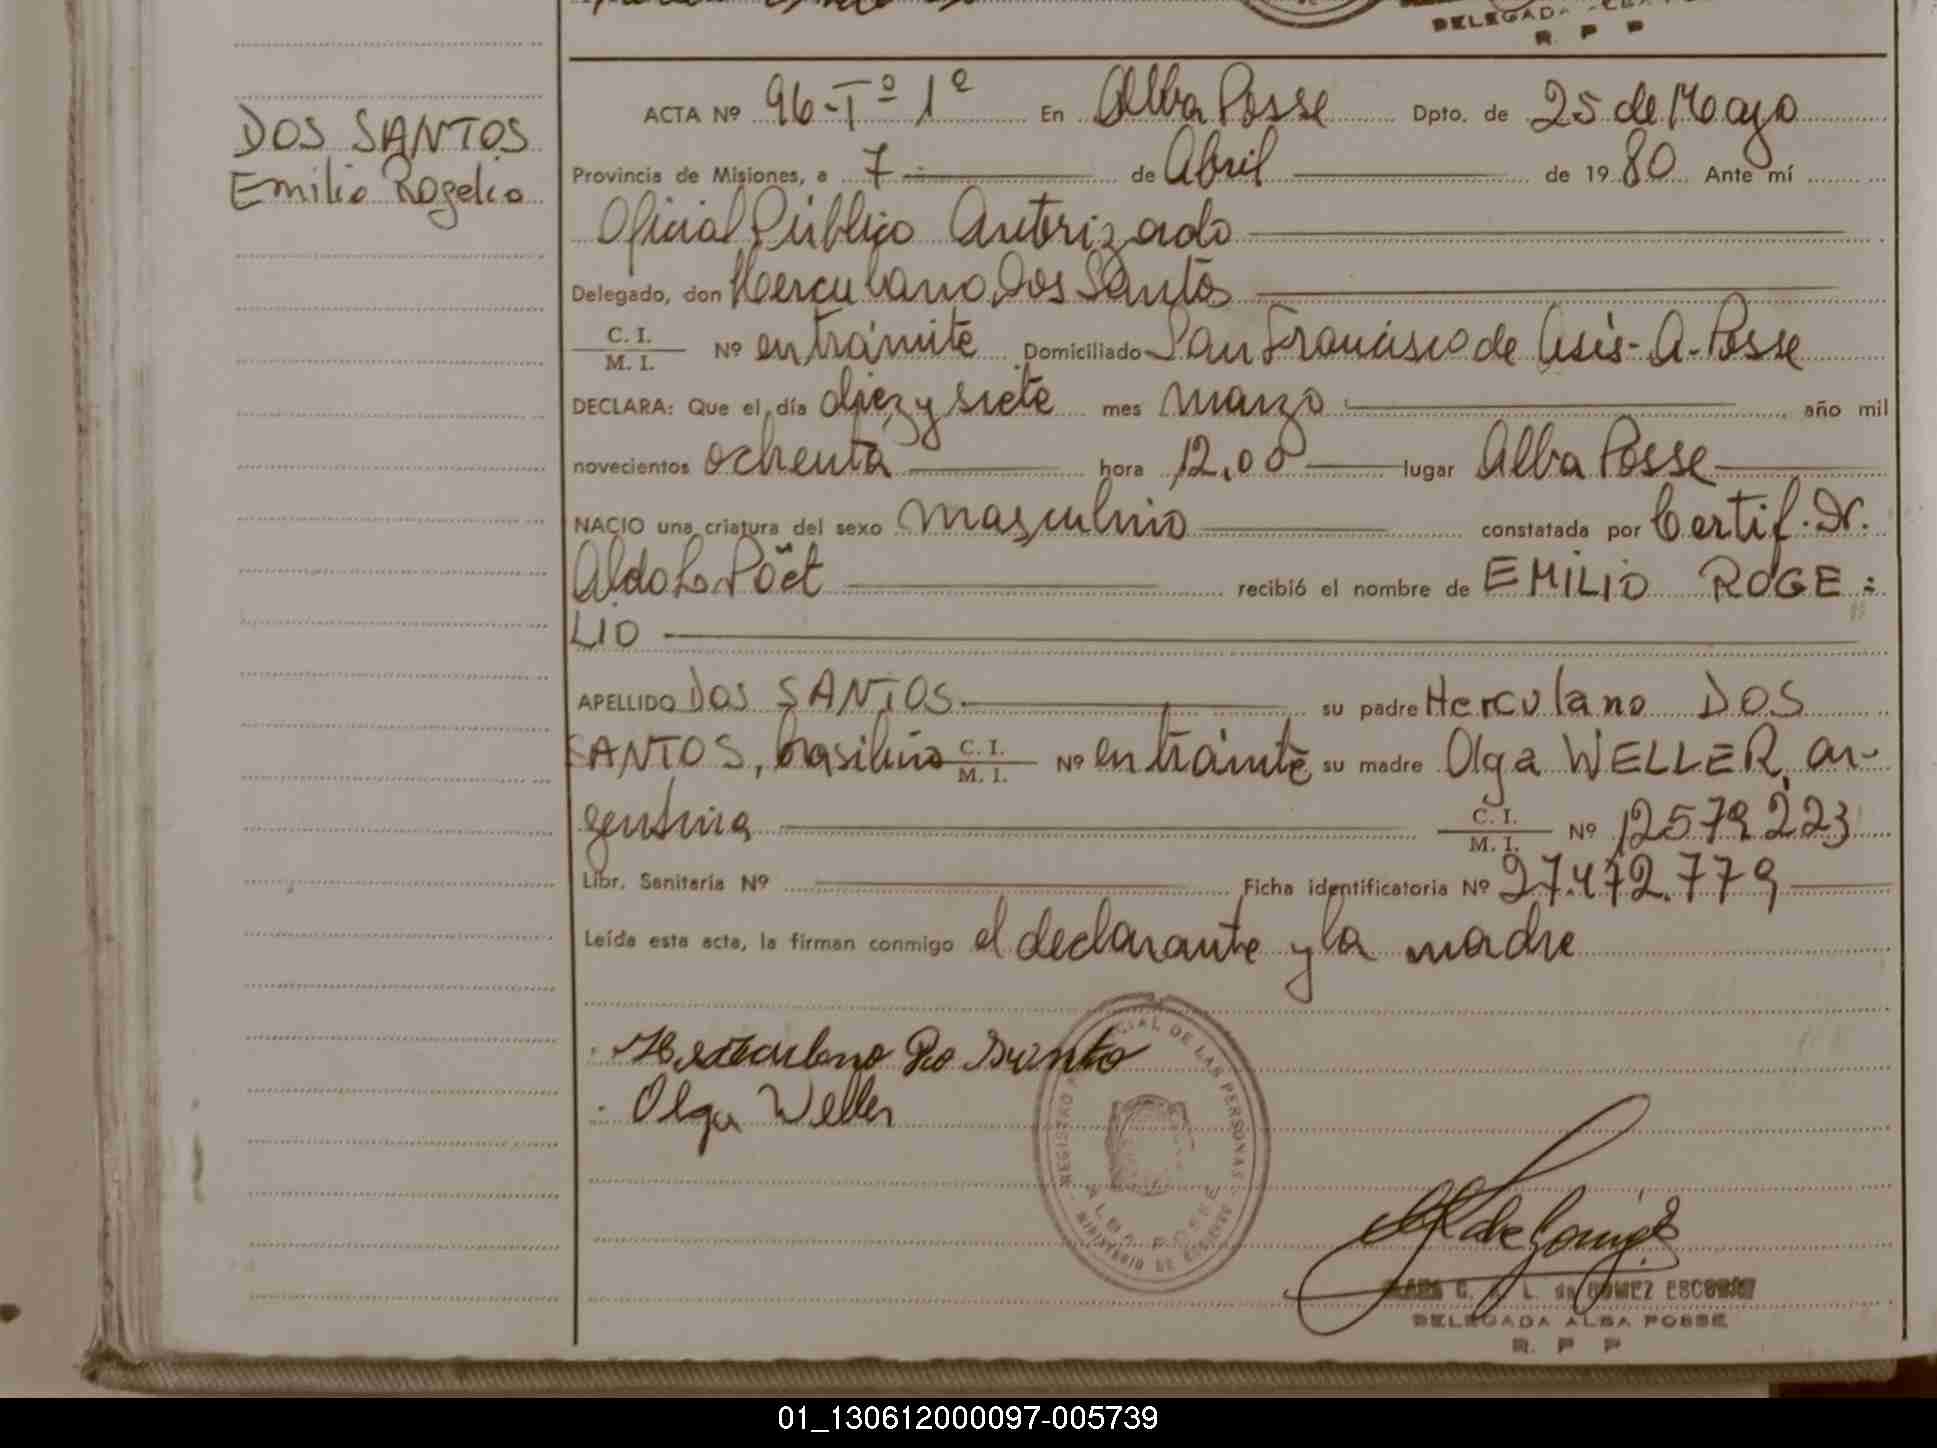 DELEGADA ALBA POSSE
R. P P
DOS SANTOS
Emilio Rogelio
ACTA Nº 96-Tº 1º En Alba Posse Dpto. de 25 de Mayo
Provincia de Misiones, a 7 de Abril de 1980 Ante mí
Oficial Público Autorizado
Delegado, don Herculano Dos Santos
C. I.
M. I.
Nº en trámite Domiciliado San Francisco de Asís- A. Posse
DECLARA: Que el día diez y siete mes marzo año mil
novecientos ochenta hora 12,00 lugar Alba Posse
NACIO una criatura del sexo masculino constatada por Certif. Dr.
Aldo L. Poët recibió el nombre de EMILIO ROGE=
LIO
APELLIDO DOS SANTOS su padre Herculano DOS
SANTOS, brasileño C. I. M. I. Nº en trámite su madre Olga WELLER, ar-
gentina C. I. M. I. Nº 12579.223
Libr. Sanitaria Nº Ficha identificatoria Nº 27.472.779
Leída esta acta, la firman conmigo el declarante y la madre
Olga Weller
REGISTRO PROVINCIAL DE LAS PERSONAS
ALBA POSSE
MINISTERIO DE GOBIERNO
C. L. de GOMEZ ESCOBAR
DELEGADA ALBA POSSE
R. P P
01_130612000097-005739